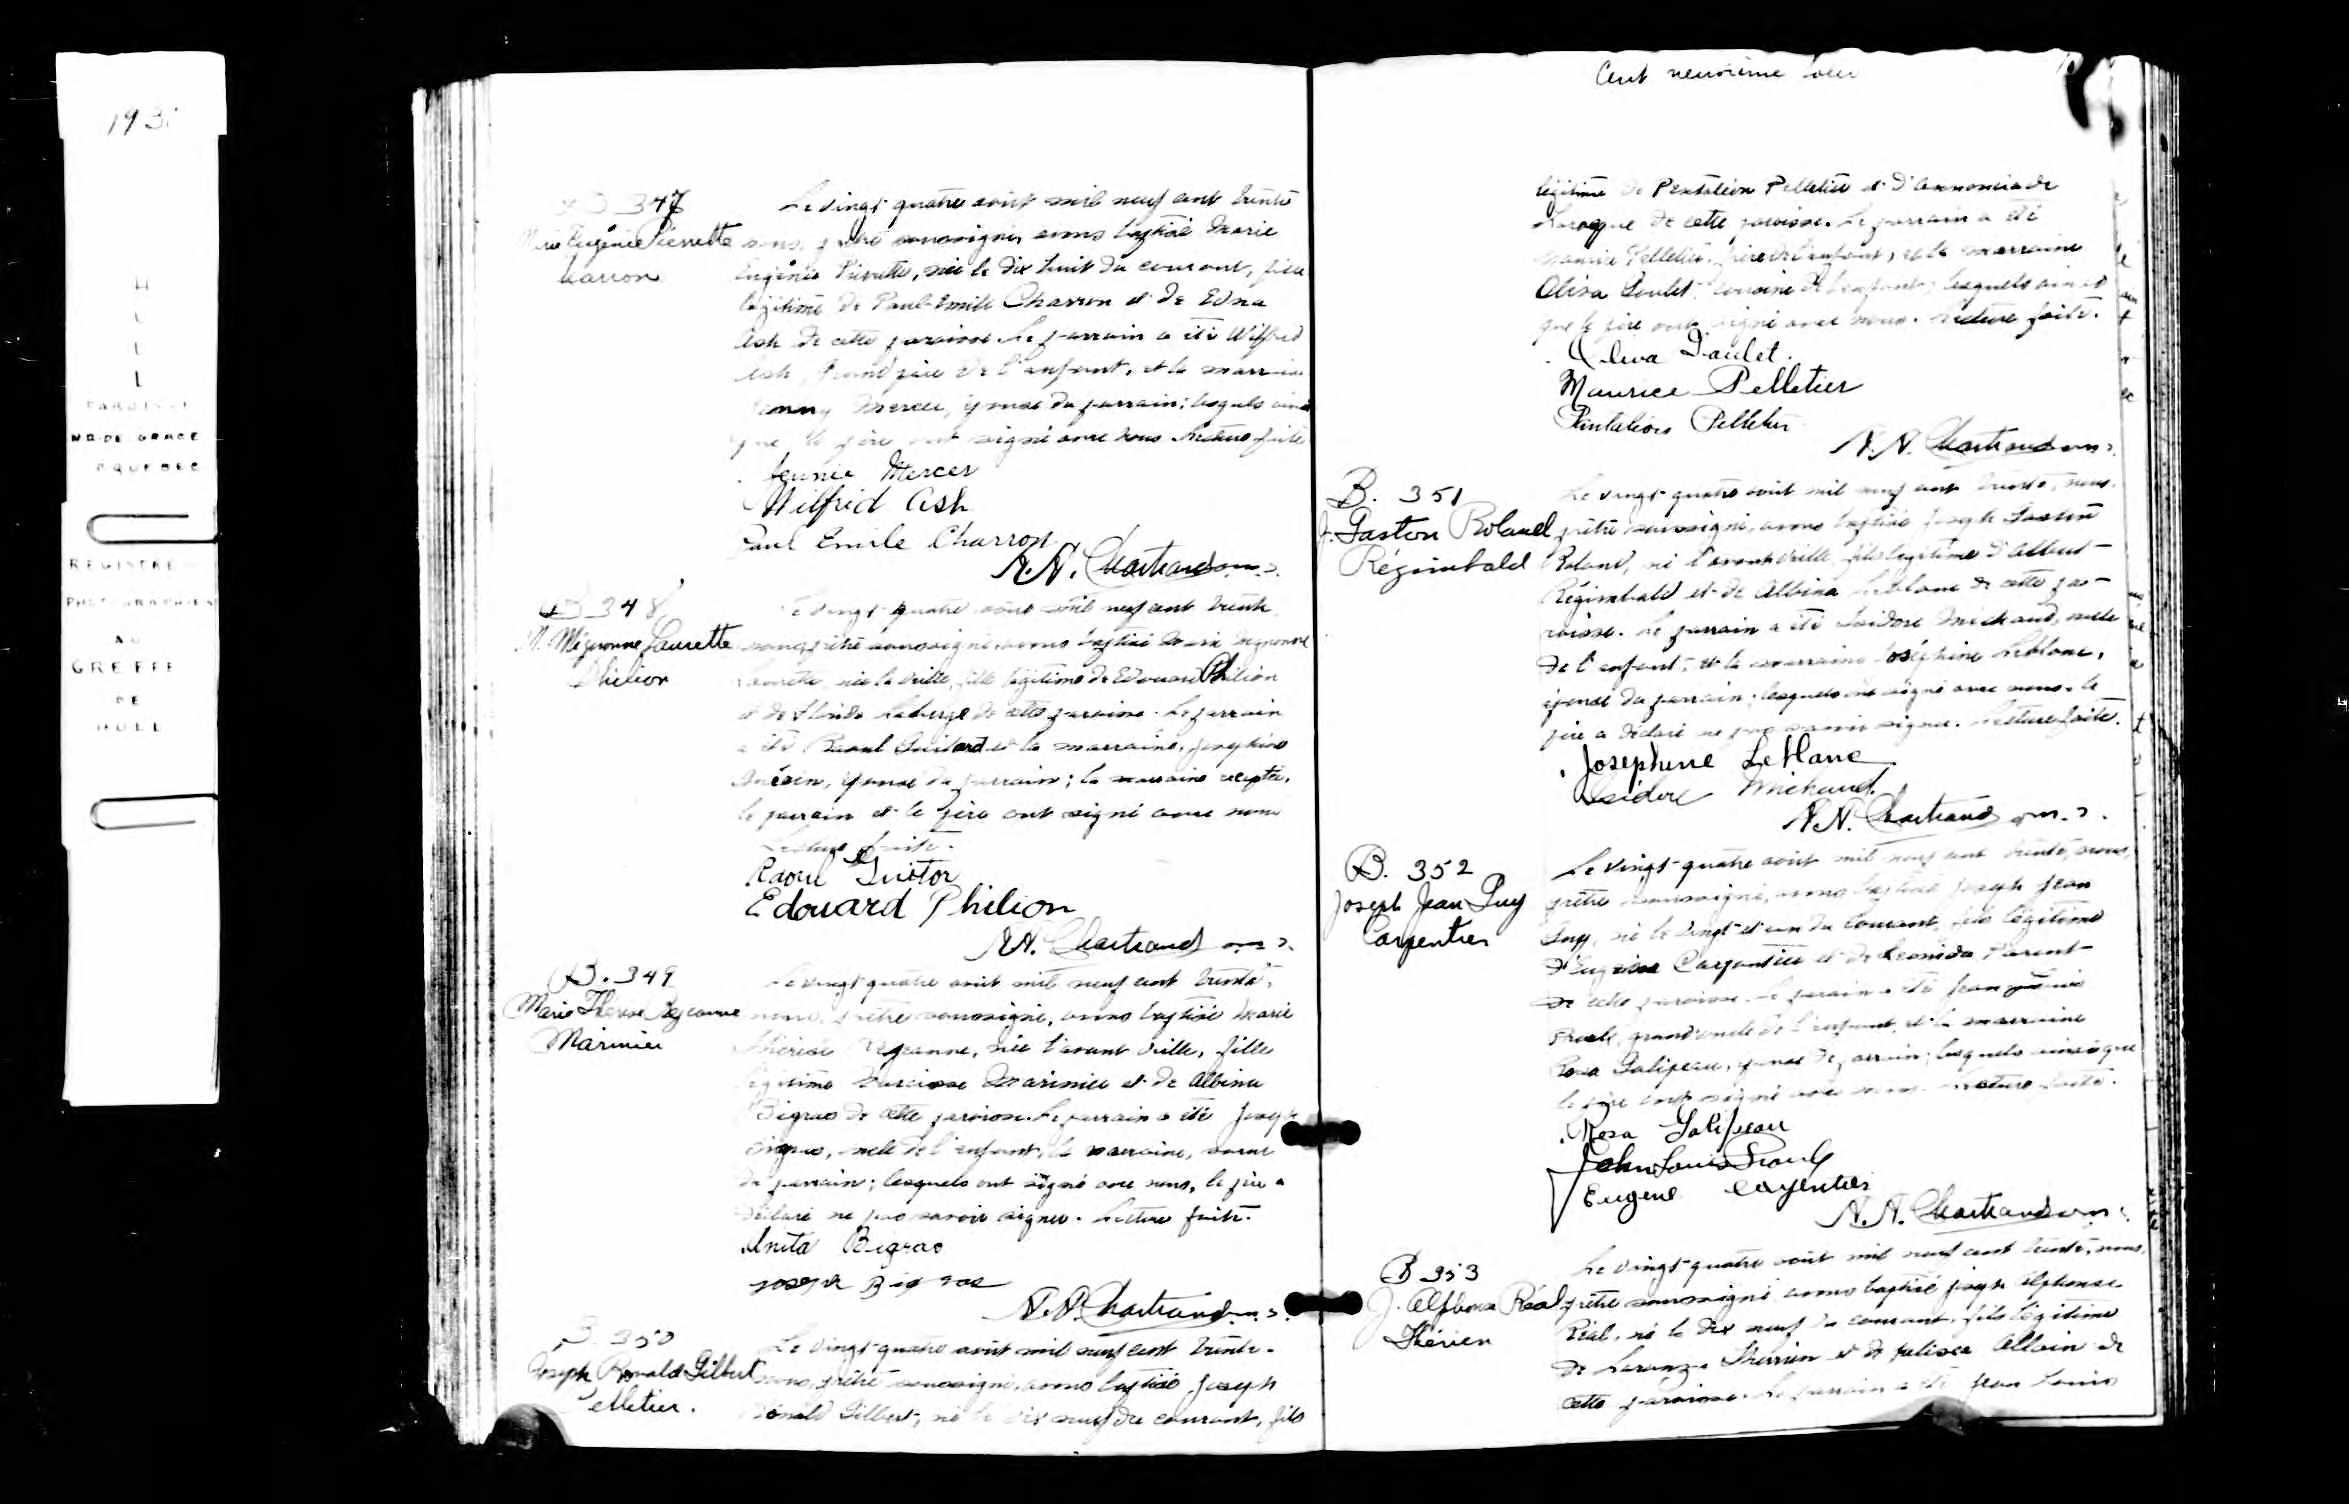 193
H
L
L
PAROISSE
N.D. DE GRACE
QUEBEC
REGISTRE
PHOTOGRAPHIES
AU
GREFFE
DE
HULL
B 347
Marie Eugénie Pierrette
Carron
Le vingt-quatre août mil neuf cent trente
nous, prêtre soussigné, avons baptisé Marie
Eugénie Pierrette, née le dix huit du courant, fille
légitime de Paul-Emile Charron et de Edna
Ash de cette paroisse. Le parrain a été Wilfrid
Ash, grand père de l'enfant, et la marraine
Mercer, épouse du parrain; lesquels ainsi
que le père ont signé avec nous. Lecture faite
Jennie Mercer
Wilfrid Ash
Paul Emile Charron
N.N. Chartrand
B 348
M. Mignonne Laurette
Philion
Le vingt-quatre août mil neuf cent trente
nous, prêtre soussigné, avons baptisé Marie Mignonne
Laurette, née la veille, fille légitime de Edouard Philion
et de Laberge de cette paroisse. Le parrain
a été Raoul Guitard et la marraine, Joséphine
épouse du parrain; la marraine exceptée,
le parrain et le père ont signé avec nous
Lecture faite.
Raoul Guitor
Edouard Philion
N.N. Chartrand
B. 349
Marie Thérèse Rejeanne
Marinier
Le vingt-quatre août mil neuf cent trente,
nous, prêtre soussigné, avons baptisé Marie
Thérèse Rejeanne, née l'avant veille, fille
légitime Narcisse Marinier et de Albina
Bigras de cette paroisse. Le parrain a été Joseph
Bigras, oncle de l'enfant, la marraine, soeur
du parrain; lesquels ont signé avec nous, le père a
déclaré ne pas savoir signer. Lecture faite.
Anita Bigras
Joseph Bigras
N.N. Chartrand
B. 350
Joseph Ronald Gilbert
Pelletier.
Le vingt-quatre août mil neuf cent trente.
nous, prêtre soussigné, avons baptisé Joseph
Ronald Gilbert, né le dix neuf du courant, fils
Cent neuvième
légitime de Pentaléon Pelletier et d'Annonciade
Larocque de cette paroisse. Le parrain a été
Maurice Pelletier, frère de l'enfant, et la marraine
Oliva Doulet, cousine de l'enfant; lesquels ainsi
que le père ont signé avec nous. Lecture faite.
Oliva Daulet.
Maurice Pelletier
Pantaléon Pelletier
N.N. Chartrand
B. 351
J. Gaston Roland
Régimbald
Le vingt-quatre août mil neuf cent trente, nous,
prêtre soussigné, avons baptisé Joseph Gaston
Roland, né l'avant veille, fils légitime d'Albert
Régimbald et de Albina Leblanc de cette pa-
roisse. Le parrain a été Isidore Michaud, oncle
de l'enfant, et la marraine Joséphine Leblanc,
épouse du parrain; lesquels ont signé avec nous. Le
père a déclaré ne pas savoir signer. Lecture faite.
Josephine LeBlanc
Isidore Michaud
N.N. Chartrand
B. 352
Joseph Jean Guy
Carpentier
Le vingt-quatre août mil neuf cent trente, nous,
prêtre soussigné, avons baptisé Joseph Jean
Guy, né le vingt et un du courant, fils légitime
d'Eugène Carpentier et de Léonida Parent
de cette paroisse. Le parrain a été Jean
grand'oncle de l'enfant, et la marraine
Rosa Galipeau, épouse du parrain; lesquels ainsi que
le père ont signé avec nous. Lecture faite.
Rosa Galipeau
John Louis
Eugene Carpentier
N.N. Chartrand
B 353
J. Alphonse Réal
Thérien
Le vingt-quatre août mil neuf cent trente, nous,
prêtre soussigné avons baptisé Joseph Alphonse
Réal, né le dix neuf du courant, fils légitime
de Therrien et de Allain de
cette paroisse. Le parrain a été Jean Louis